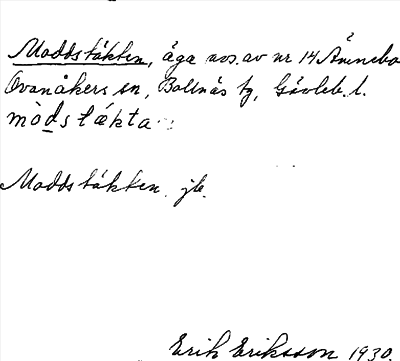 Moddståkten, äga nos. av nr 14 Ämnebo
Ovanåkers sn, Bollnäs tg, Gävleb. l.
mòdstækta
Moddståkten. jb.
Erik Eriksson 1930.